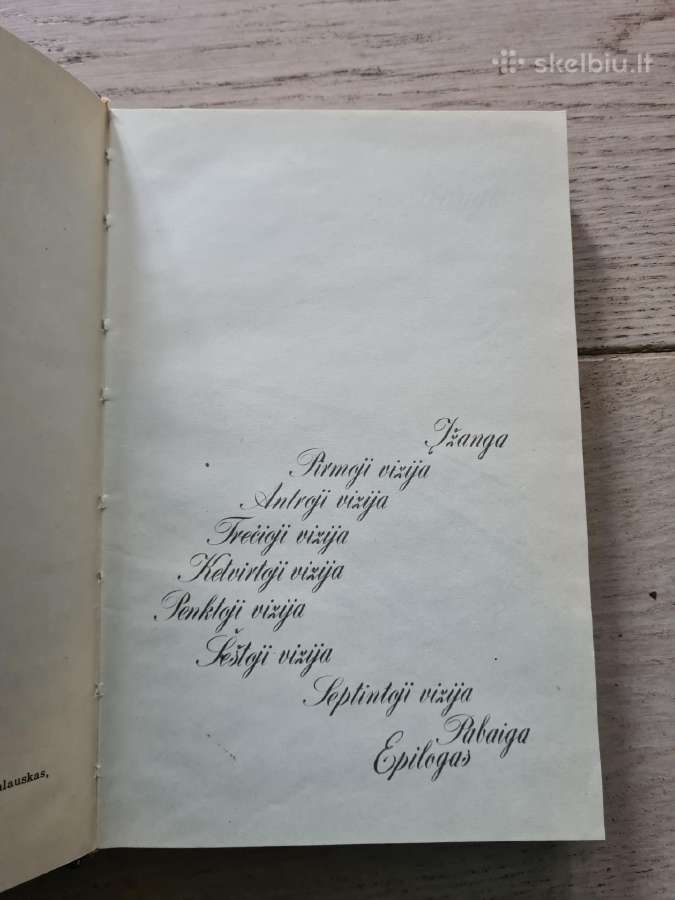 skelbiu.lt
Įžanga
Pirmoji vizija
Antroji vizija
Trečioji vizija
Ketvirtoji vizija
Penktoji vizija
Šeštoji vizija
Septintoji vizija
Pabaiga
Epilogas
lauskas,